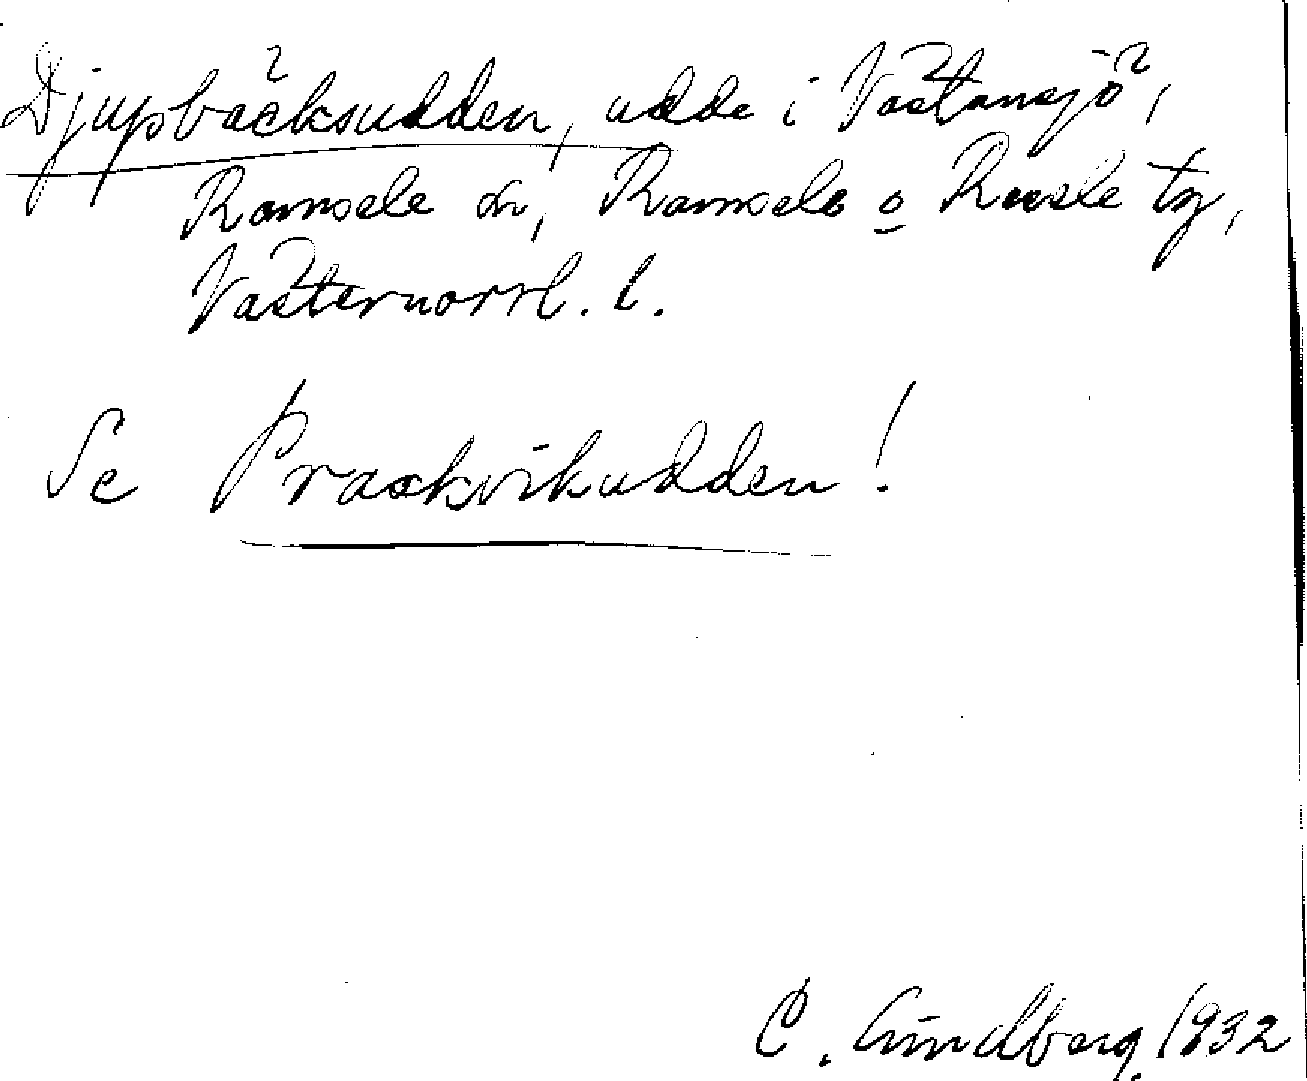 Djupbäcksudden, udde i Västansjö,
Ramsele sn, Ramsele o Resele tg,
Västernorrl. l.
Se Prackvikudden!
C. Lindberg. 1932